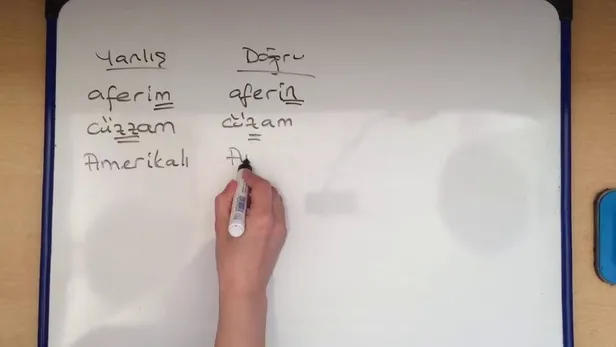 Yanlış Doğru
aferim aferin
cüzzam cüzam
Amerikalı A